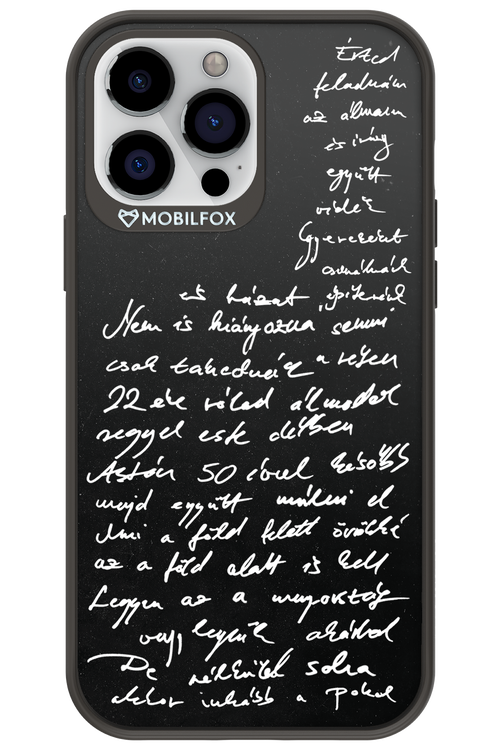 MOBILFOX
Érted
feladnám
az álmaim
és irány
együtt
vidék
Gyerekeket
csinálnánk
és házat építenénk
Nem is hiányozna semmi
csak takednék a
22 éve rólad álmodok
reggel este délben
Aztán 50 évvel később
majd együtt múlni el
Ami a föld felett örökké
az a föld alatt is kell
Legyen az a mennyország
vagy legyünk akárhol
De nélküled soha
akkor inkább a pokol